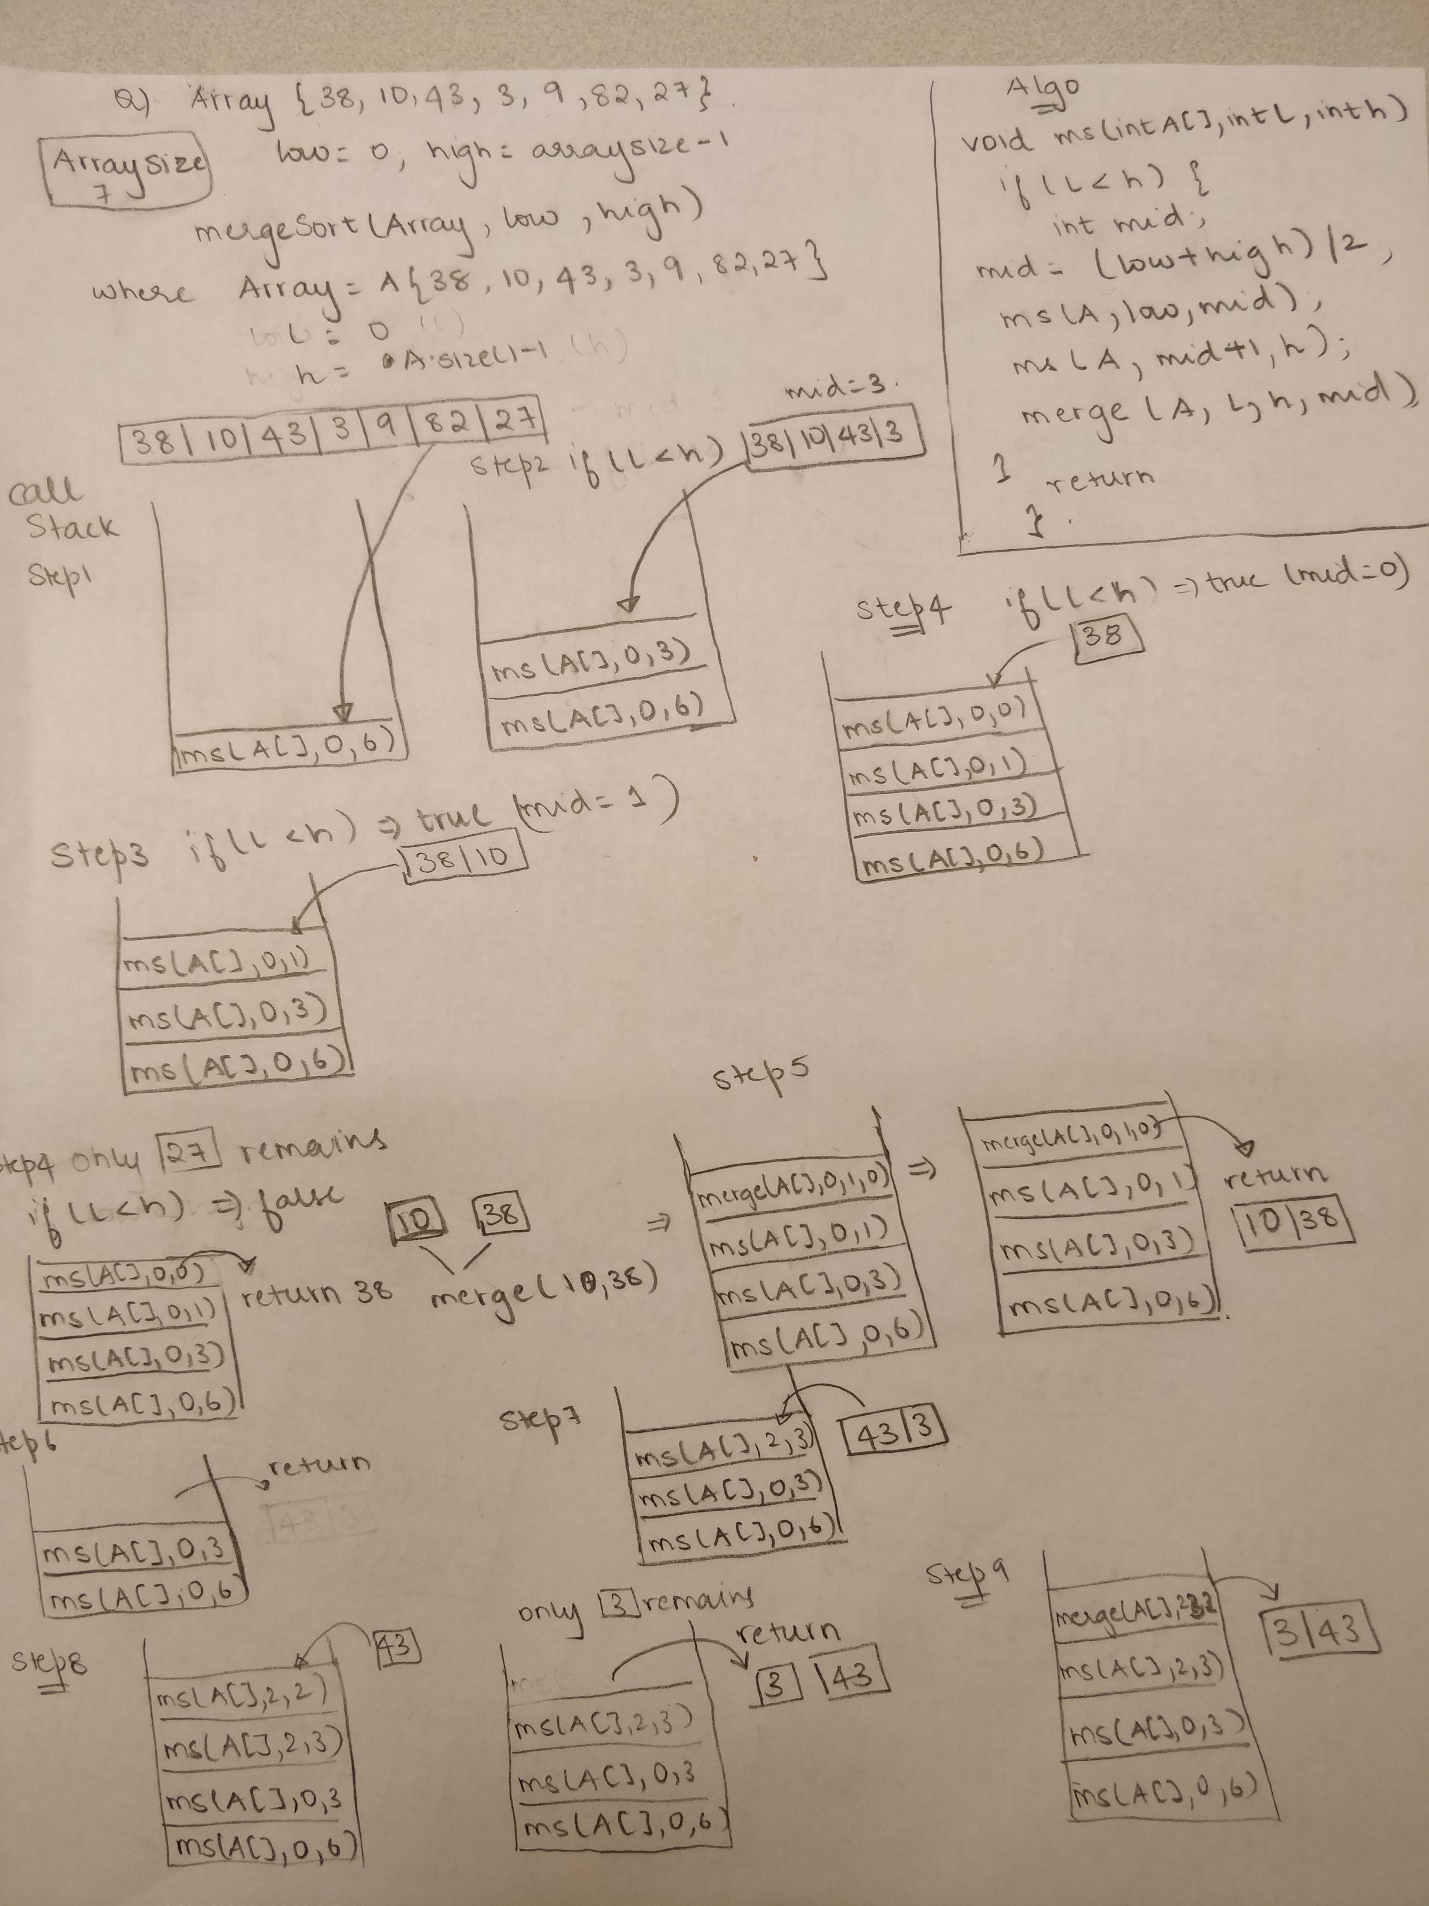 Q) Array {38, 10, 43, 3, 9, 82, 27}.
Array size
7
low = 0, high = arraysize-1
mergeSort (Array, low, high)
where Array = A{38, 10, 43, 3, 9, 82, 27}
L = 0 (L)
h = A.size()-1 (h)
Algo
void ms(int A[], int L, int h)
if (L<h) {
int mid;
mid = (low+high)/2,
ms(A, low, mid),
ms (A, mid+1, h);
merge (A, L, h, mid)
}
return
}.
38|10|43|3|9|82|27
mid=3.
Step2 if (L<h) 38|10|43|3
call
Stack
Step1
ms(A[],0,6)
ms(A[],0,3)
ms(A[],0,6)
Step4 if(L<h) ⇒ true (mid=0)
38
ms(A[],0,0)
ms(A[],0,1)
ms(A[],0,3)
ms(A[],0,6)
Step3 if(L<h) ⇒ true (mid=1)
38|10
ms(A[],0,1)
ms(A[],0,3)
ms(A[],0,6)
Step4 only 27 remains
if (L<h) ⇒ false
ms(A[],0,0)
ms(A[],0,1)
ms(A[],0,3)
ms(A[],0,6)
return 38
10 38
merge(10,38)
⇒
Step5
merge(A[],0,1,0)
ms(A[],0,1)
ms(A[],0,3)
ms(A[],0,6)
⇒
merge(A[],0,1,0)
ms(A[],0,1)
ms(A[],0,3)
ms(A[],0,6).
return
10|38
tep6
return
43|3
ms(A[],0,3
ms(A[],0,6
Step7
43|3
ms(A[],2,3)
ms(A[],0,3)
ms(A[],0,6)
Step8
43
ms(A[],2,2)
ms(A[],2,3)
ms(A[],0,3
ms(A[],0,6)
only 3 remains
return
3 43
ms(A[],2,3)
ms(A[],0,3
ms(A[],0,6)
Step9
merge(A[],2
3|43
ms(A[],2,3)
ms(A[],0,3)
ms(A[],0,6)